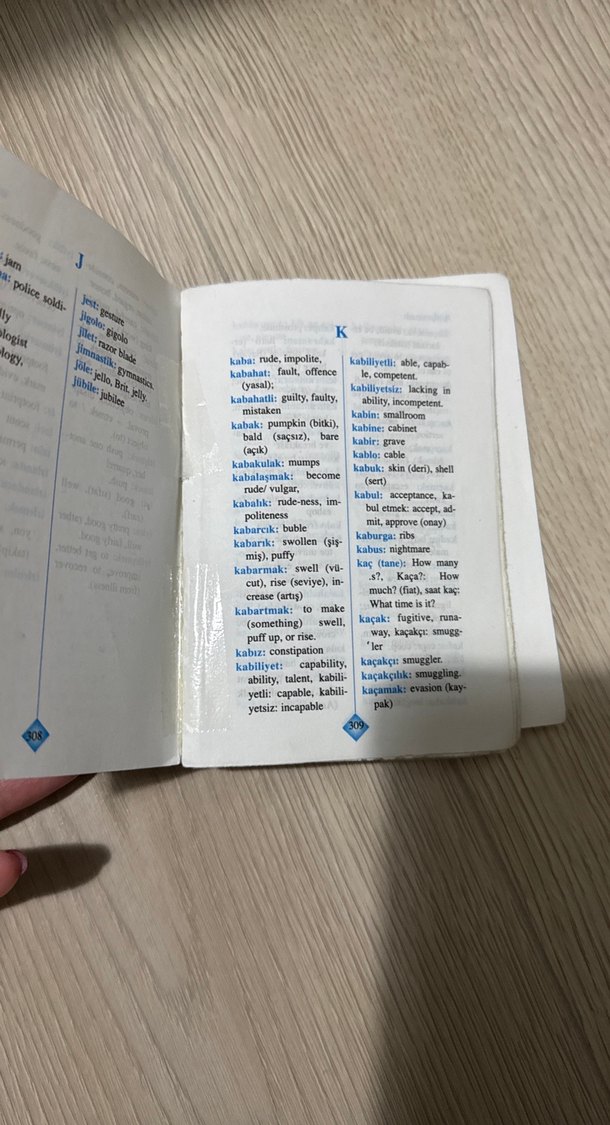 jam
police soldi-
J
jest: gesture
jigolo: gigolo
jilet: razor blade
jimnastik: gymnastics
jöle: jello, Brit, jelly,
jübile: jubilee
308
K
kaba: rude, impolite,
kabahat: fault, offence
(yasal);
kabahatli: guilty, faulty,
mistaken
kabak: pumpkin (bitki),
bald (saçsız), bare
(açık)
kabakulak: mumps
kabalaşmak: become
rude/ vulgar,
kabalık: rude-ness, im-
politeness
kabarcık: buble
kabarık: swollen (şiş-
miş), puffy
kabarmak: swell (vü-
cut), rise (seviye), in-
crease (artış)
kabartmak: to make
(something) swell,
puff up, or rise.
kabız: constipation
kabiliyet: capability,
ability, talent, kabili-
yetli: capable, kabili-
yetsiz: incapable
kabiliyetli: able, capab-
le, competent.
kabiliyetsiz: lacking in
ability, incompetent.
kabin: smallroom
kabine: cabinet
kabir: grave
kablo: cable
kabuk: skin (deri), shell
(sert)
kabul: acceptance, ka-
bul etmek: accept, ad-
mit, approve (onay)
kaburga: ribs
kabus: nightmare
kaç (tane): How many
.s?, Kaça?: How
much? (fiat), saat kaç:
What time is it?
kaçak: fugitive, runa-
way, kaçakçı: smugg-
ler
kaçakçı: smuggler.
kaçakçılık: smuggling.
kaçamak: evasion (kay-
pak)
309